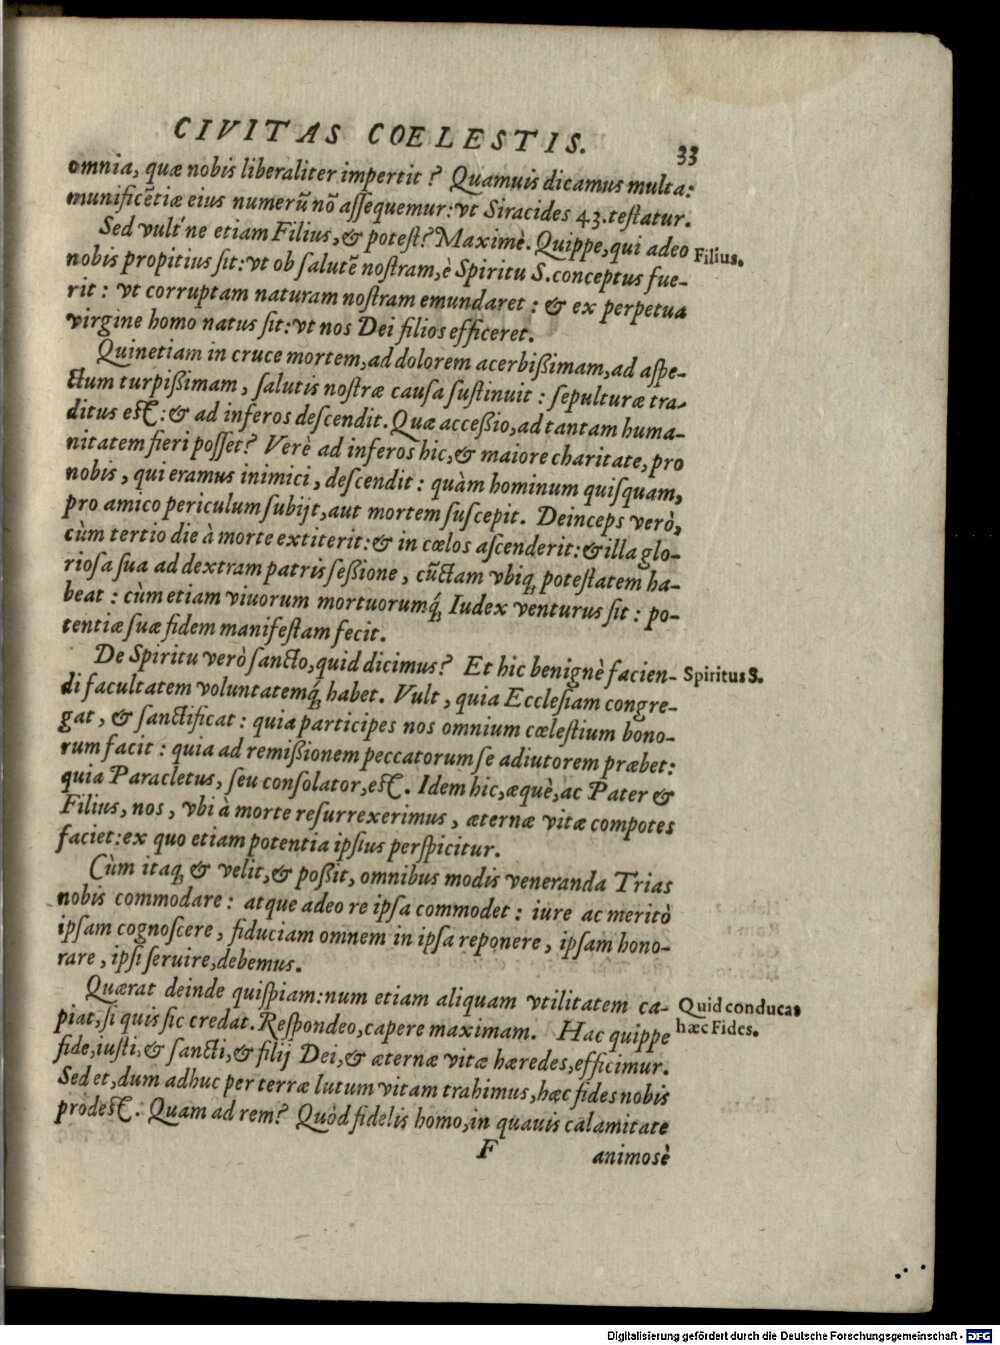 CIVITAS COELESTIS. 33
omnia, quæ nobis liberaliter impertit? Quamuis dicamus multa:
munificẽtiæ eius numerũ nõ aſſequemur: vt Siracides 43. teſtatur.
Sed vult'ne etiam Filius, & poteſt? Maximè. Quippe, qui adeo
Filius.
nobis propitius ſit: vt ob ſalutẽ noſtram, è Spiritu S. conceptus fue-
rit: vt corruptam naturam noſtram emundaret: & ex perpetua
virgine homo natus ſit: vt nos Dei filios efficeret.
Quinetiam in cruce mortem, ad dolorem acerbißimam, ad aſpe-
ctum turpißimam, ſalutis noſtræ cauſa ſuſtinuit: ſepulturæ tra-
ditus eſt: & ad inferos deſcendit. Quæ acceßio, ad tantam huma-
nitatem fieri poſſet? Verè ad inferos hic, & maiore charitate, pro
nobis, qui eramus inimici, deſcendit: quàm hominum quiſquam,
pro amico periculum ſubijt, aut mortem ſuſcepit. Deinceps verò,
cùm tertio die à morte extiterit: & in cœlos aſcenderit: & illa glo-
rioſa ſua ad dextram patris ſeßione, cũctam vbiq; poteſtatem ha-
beat: cùm etiam viuorum mortuorumq́; Iudex venturus ſit: po-
tentiæ ſuæ fidem manifeſtam fecit.
De Spiritu verò ſancto, quid dicimus? Et hic benignè facien-
Spiritus S.
di facultatem voluntatemq́; habet. Vult, quia Eccleſiam congre-
gat, & ſanctificat: quia participes nos omnium cœleſtium bono-
rum facit: quia ad remißionem peccatorum ſe adiutorem præbet:
quia Paracletus, ſeu conſolator, eſt. Idem hic, æquè, ac Pater &
Filius, nos, vbi à morte reſurrexerimus, æternæ vitæ compotes
faciet: ex quo etiam potentia ipſius perſpicitur.
Cùm itaq; & velit, & poßit, omnibus modis veneranda Trias
nobis commodare: atque adeo re ipſa commodet: iure ac meritò
ipſam cognoſcere, fiduciam omnem in ipſa reponere, ipſam hono-
rare, ipſi ſeruire, debemus.
Quærat deinde quiſpiam: num etiam aliquam vtilitatem ca-
Quid conducat
piat, ſi quis ſic credat. Reſpondeo, capere maximam. Hac quippe
hæc Fides.
fide, iuſti, & ſancti, & filij Dei, & æternæ vitæ hæredes, efficimur.
Sed et, dum adhuc per terræ lutum vitam trahimus, hæc fides nobis
prodeſt. Quam ad rem? Quòd fidelis homo, in quauis calamitate
F animosè
Digitalisierung gefördert durch die Deutsche Forschungsgemeinschaft - DFG